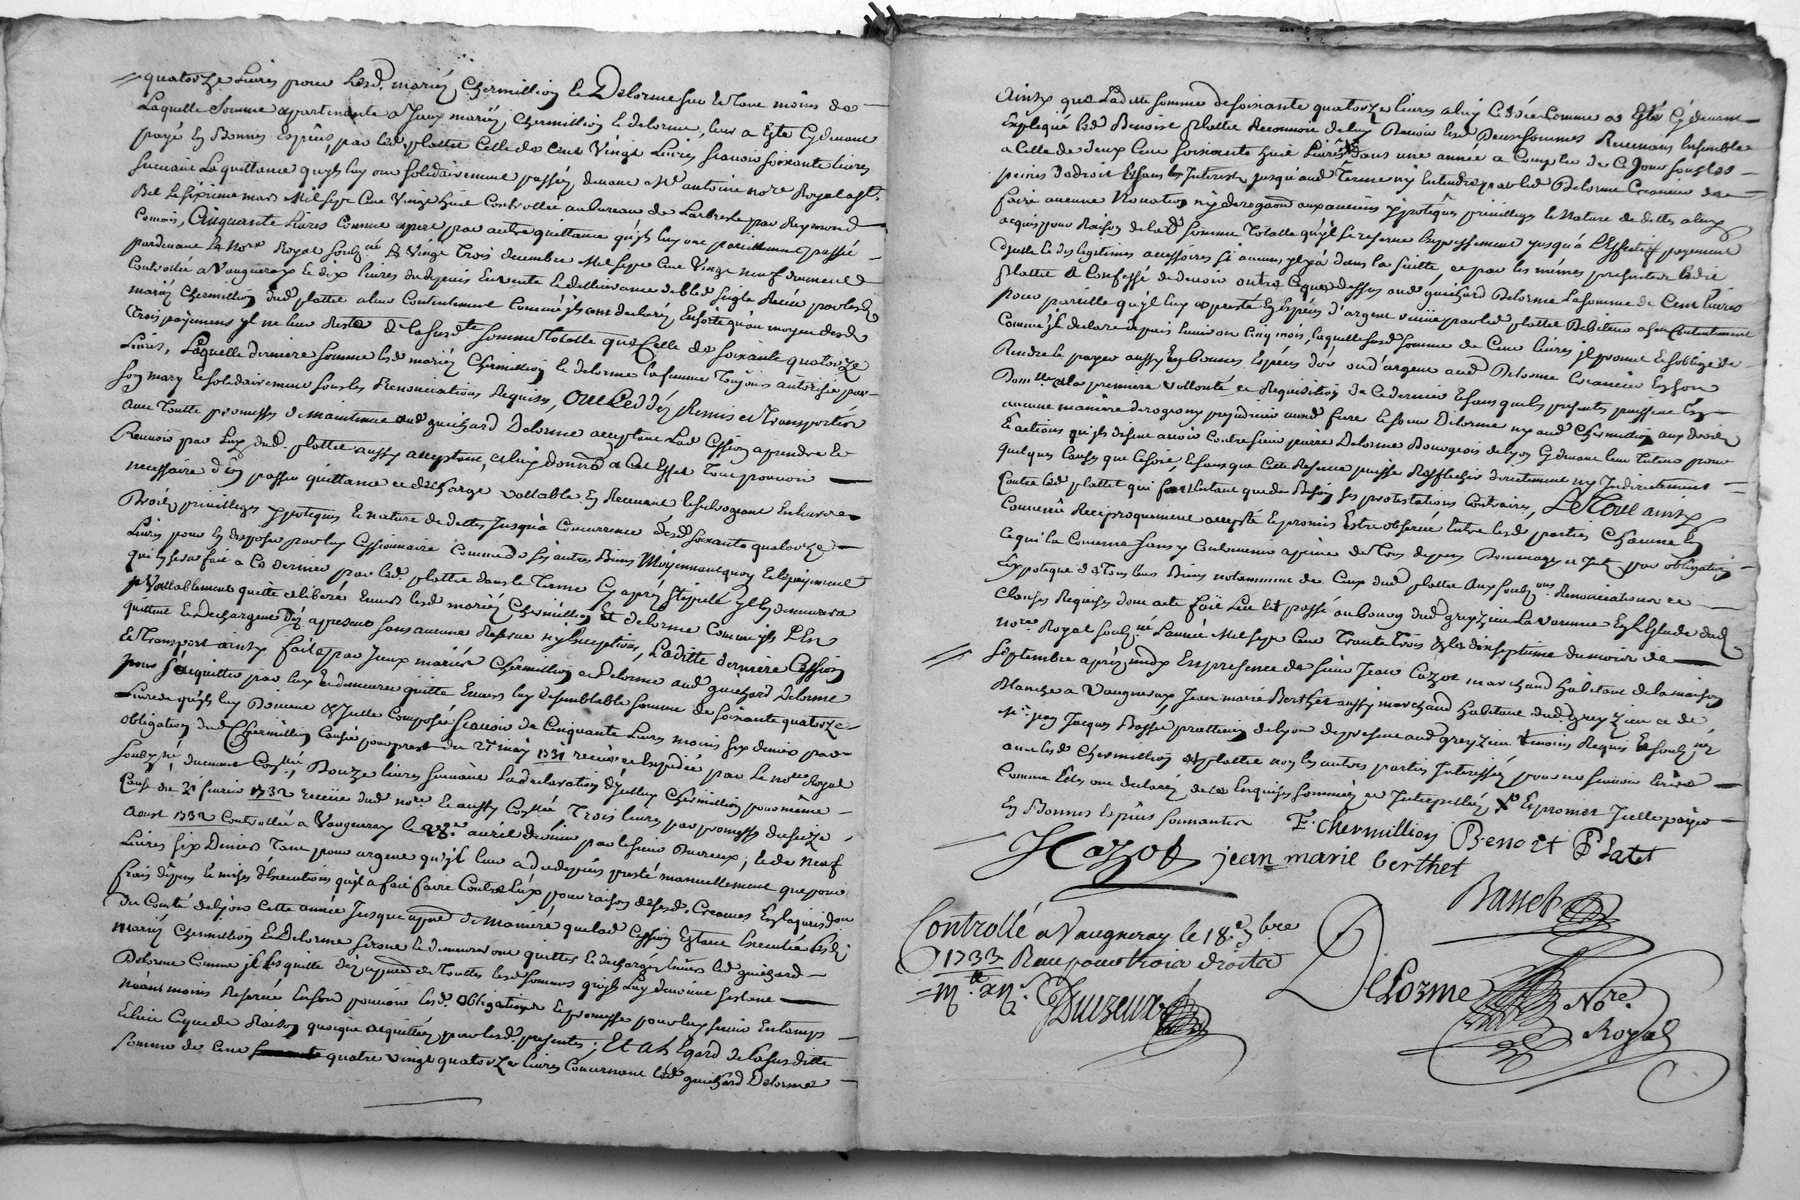 quatorze Livres pour Lesd. mariéz Chermillion et Delorme
Laquelle Somme appartenante a Iceux mariéz Chermillion et delorme, leur a Esté Cydevant
payé En Bonnes Espèces, par led. plattet Celle de Cent Vingt Livres scavoir soixante livres
suivant La quittance qu'ils luy ont solidairement passée devant Me antoine nore Royal
Le sixieme mars Mil sept Cent Vingt huit Controllée au bureau de Larbresle par Reymond
Commis, Cinquante Livres Comme appert par autre quittance qu'ils luy ont pareillement passée
pardevant Le Nore Royal soubzné Le Vingt Trois decembre Mil sept Cent Vingt neuf duement
Controllée a Vaugneray et dix livres du depuis En vente et delivrance de bled seigle
mariéz Chermillion dud. plattet a leur Contentement Comme ils ont declaré, Ensorte qu'au moyen desd.
Trois payemens il ne leur Reste de la susd. somme Totalle que Celle de soixante quatorze
Livres, Laquelle derniere somme lesd. mariéz Chermillion et delorme la femme Toujours autorisée par
son mary et solidairement sous les Renonciations Requises, Ont Cedéz Remis et Transportéz
avec Toutte promesses de maintenir aud. guichard Delorme acceptant Lad. Cession a prendre et
Recevoir par Luy dud. plattet aussy acceptant, et luy donne a Cet Effet Tout pouvoir
necessaire d'en passer quittance et decharge vallable En Recevant et subrogeant
Droits, privilleges hypoteques et nature de dettes Jusqu'a Concurrence desd. soixante quatorze
Livres pour En disposer par luy Cessionnaire Comme de ses autres Biens Moyennant quoy et le payement
qui En sera fait a Ce dernier par led. plattet dans le Terme Cy apres stipulé il En demeurera
Vallablement quitte et liberé Envers lesd. mariéz Chermillion Et delorme Comme ils L'En
quittent et dechargent Déz apresent sans aucune Reserve ny Exception, Laditte derniere Cession
et Transport ainsy faite par Iceux mariéz Chermillion et Delorme aud. guichard Delorme
pour s'acquitter par Eux et demeurer quitte Envers luy de semblable somme de soixante quatorze
Livres qu'ils luy Doivent Icelle Composée scavoir de Cinquante Livres moins six deniers par
obligation dud. Chermillion Causée pour prest du 27 may 1731 receüe et Expediée par Le nore Royal
soubzné duement Collé, Douze livres suivant La declaration d'Icelluy Chermillion pour même
Cause du 21 fevrier 1732 receüe dud. nore Et aussy Collée Trois livres par promesse du seize
Aoust 1732 Controllée a Vaugneray le 28e avril dernier par le sieur Duvreux, et de neuf
Livres six Deniers Tant pour argent qu'il leur a du depuis presté manuellement que pour
frais depens et mises d'Executions qu'il a fait faire Contre Eux pour raison desd. Creances
du Comté de lyon cette année Jusque a present de Maniere que lad. Cession Estant Executée lesd.
mariéz Chermillion et Delorme seront et demeureront quittes et dechargés Envers led. guichard
Delorme Comme il les quitte déz apresent de Touttes lesd. sommes qu'ils luy devoient
néantmoins Reservée Ensorte pouvoir lesd. obligations et promesse pour luy servir En temps
Et lieu Ce que de Raison quoique acquittées par lesd. presentes; Et a L'Egard de la susditte
somme de Cent quatre vingt quatorze livres Concernant led. guichard Delorme
Ainsy que Laditte somme de soixante quatorze livres a luy Cedée Comme a Esté Cydevant
Expliqué led. Benoist plattet Reconnoit debvoir lesd. Deux sommes Revenans Ensemble
a Celle de deux Cent soixante huit Livres dans une année a Compter de Ce Jour sous les
peines de droit Et sans Interest jusqu'aud. Terme ny Entendre par led. Delorme Creancier
faire aucune Novation ny derogation aux anciens hypoteques privilleges et Nature de dettes a luy
acquis pour Raison de lad. somme Totalle qu'il se reserve Expressement jusqu'a L'Effectif payement
d'Icelle et des legitimes accessoires si aucuns y a dans la suitte, et par les mêmes presentes led.
plattet a Confessé de devoir outre Ce que dessus aud. guichard Delorme La somme de Cent livres
pour pareille qu'il luy a presté En Espèces d'argent reçüe par led. plattet Debiteur a son Contentement
Comme il declare depuis Environ Cinq mois, laquelle susd. somme de Cent livres il promet et s'oblige de
Rendre et payer aussy En bonnes Espèces d'or ou d'argent aud. Delorme Creancier En son
Domicile a la premiere vollonté et Requisition de Ce dernier Et sans que les presentes puissent En
aucune maniere deroger ny prejudicier aud. sieur Delorme ny aud. Chermillion aux droits
Et actions qu'ils disent avoir Contre sieur pierre Delorme Bourgeois de lyon Cydevant leur Tuteur pour
quelques Causes que Ce soit, Et sans que Cette Reserve puisse Refflechir directement ny Indirectement
Contre led. plattet qui fait Entant que de Besoin ses protestations Contraires, Le Tout ainsy
Convenû Reciproquement accepté Et promis Estre observé Entre lesd. parties Chacune En
Ce qui la Concerne sans y Contrevenir a peine de Tous depens Dommages et Intts par obligation
Et hypoteque de Tous leurs Biens notamment de Ceux dud. plattet Aux soubzons Renonciations et
Clauses Requises dont acte fait Leu Et passé au bourg dud. greyzieu Lavarenne En L'Etude dud.
nore Royal soubzné L'année Mil sept Cent Trente Trois Et le dixseptieme du mois de
Septembre apres midy En presence de sieur Jean Cazot marchand habitant de la maison
Blanche a Vaugneray, Jean marie Berthet aussy marchand habitant dud. greyzieu et de
Me jean Jacques Basset pratticien de lyon de present aud. greyzieu temoins Requis Et soubznéz
avec lesd. Chermillion et plattet non les autres parties Interessées pour ne scavoir Ecrire
Comme Elles ont declaré de ce Enquises sommées et Interpellées, X Et promet Icelle payer
En Bonnes Espèces sonnantes F: chermillion Benoit Platet
J Cazot jean marie berthet
Basset
Controllé a Vaugneray le 18e 7bre
1733 Receu pour trois droits
Duvreux
DeLorme Nore
Royal